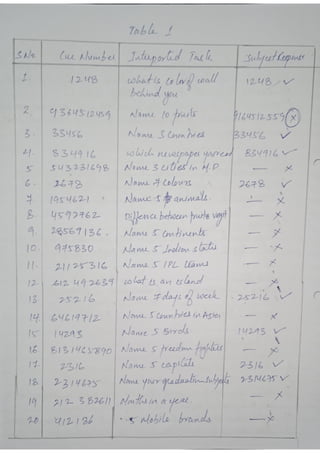 Table 1
S.No Cue Number Interpolted Task Subject Response
1. 1248 what is color of wall 1248 ✓
behind you
2. 9364512459 Name 10 fruits 9164512559 ⓧ
3. 33456 Name 3 Countries 33456 ✓
4. 834916 which newspaper you read 834916 ✓
5 543231698 Name 3 cities in M.P — ×
6. 2678 Name 7 colours 2678 ✓
7 1954621 Name 5 animals. — ×
8 4592762 Diffence between fruit & veget — ×
9 28569136. Name 5 Continents — ×
10. 975830 Name 5 Indian states — ×
11. 21125316 Name 5 IPL teams — ×
12 612492639 what is an island — ×
13 25216 Name 7 days of week 25216 ✓
14 64619712 Name 5 Countries in Asia — ×
15 14293 Name 5 Birds 14293 ✓
16 8131465890 Name 5 freedom fighters — ×
17 2316 Name 5 capitals 2316 ✓
18 2314625 Name your graduation subjects 2314675 ✓
19 212382611 in a year. — ×
20 912136 5 Mobile brands — ×